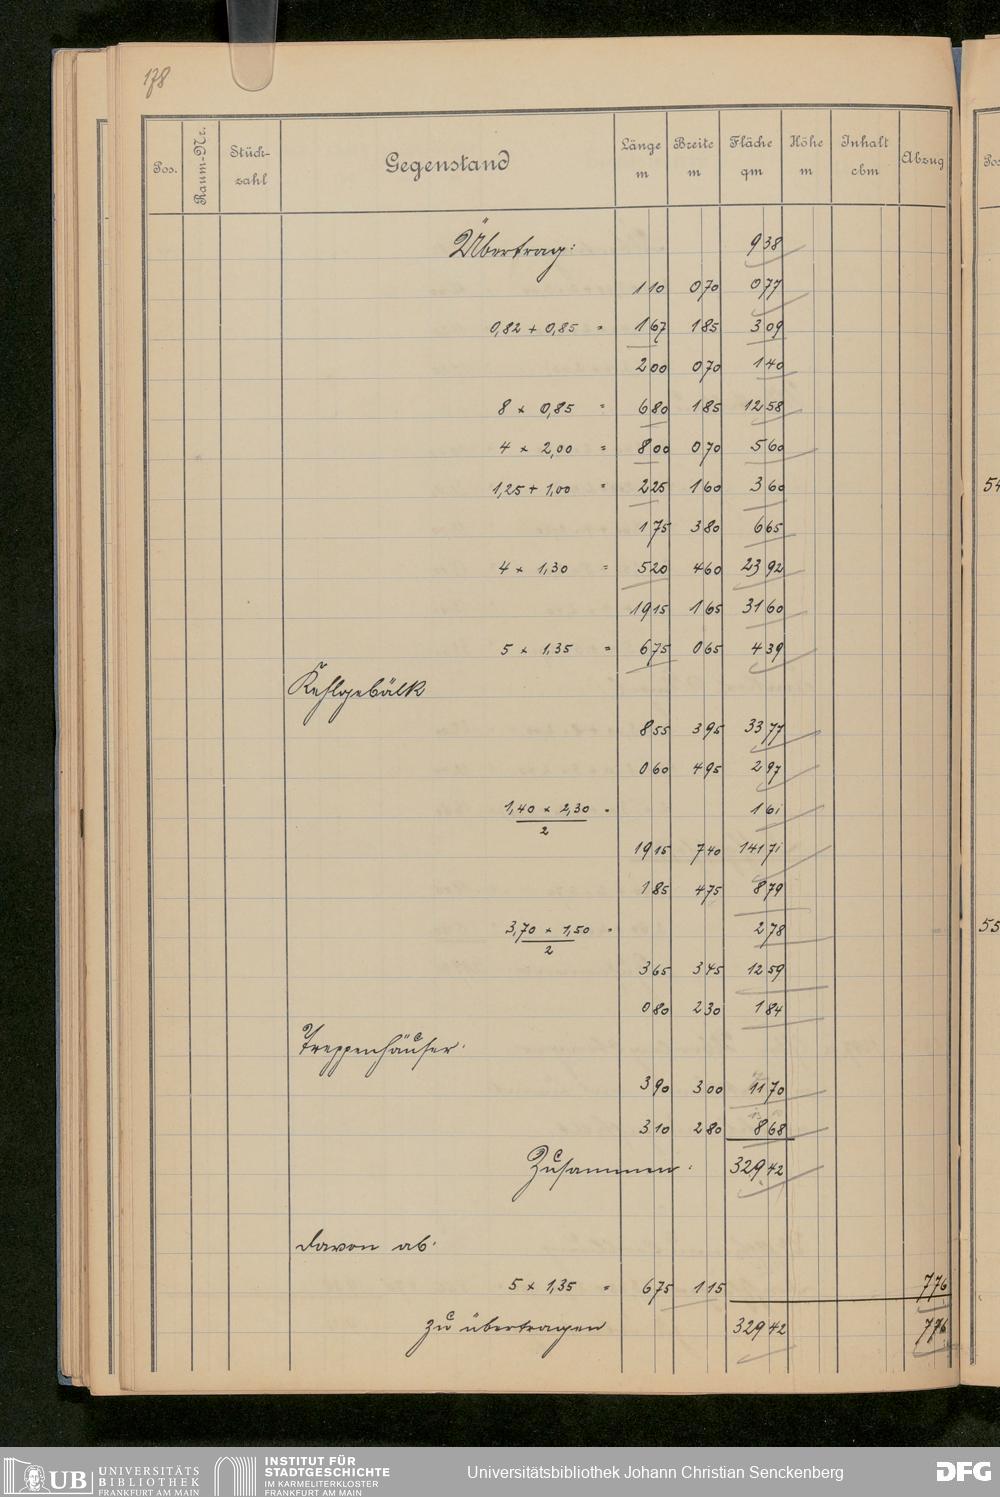 178
Pos. Raum-Nr. Stück-zahl Gegenstand Länge m Breite m Fläche qm Höhe m Inhalt cbm Abzug
Übertrag: 9 38
1 10 0 70 0 77
0,82 + 0,85 = 1 67 1 85 3 09
2 00 0 70 1 40
8 × 0,85 = 6 80 1 85 12 58
4 × 2,00 = 8 00 0 70 5 60
1,25 + 1,00 = 2 25 1 60 3 60
1 75 3 80 6 65
4 × 1,30 = 5 20 4 60 23 92
19 15 1 65 31 60
5 × 1,35 = 6 75 0 65 4 39
Kehlgebälk
8 55 3 95 33 77
0 60 4 95 2 97
1,40 × 2,30 = 1 61
2
19 15 7 40 141 71
1 85 4 75 8 79
3,70 × 1,50 = 2 78
2
3 65 3 45 12 59
0 80 2 30 1 84
Treppenhäuser.
3 90 3 00 11 70
3 10 2 80 8 68
Zusammen: 329 42
davon ab:
5 × 1,35 = 6 75 1 15 7 76
zu übertragen 329 42 7 76
54
55
UB UNIVERSITÄTS
BIBLIOTHEK
FRANKFURT AM MAIN
INSTITUT FÜR
STADTGESCHICHTE
IM KARMELITERKLOSTER
FRANKFURT AM MAIN
Universitätsbibliothek Johann Christian Senckenberg
DFG